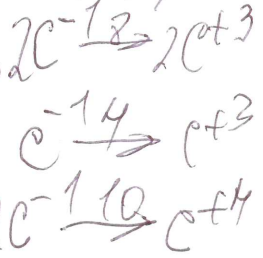 2C⁻¹ 8→ 2C⁺³
C⁻¹ 4→ C⁺³
C⁻¹ 10→ C⁺⁴